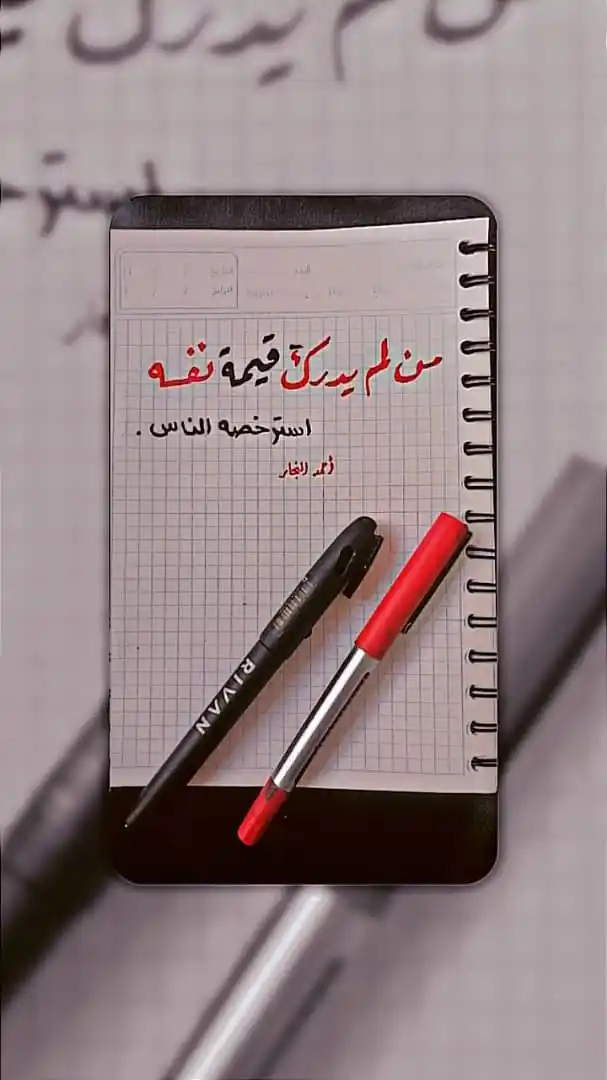 من لم يدرك قيمة نفسه
استرخصه الناس .
أحمد النجار
RIVAN